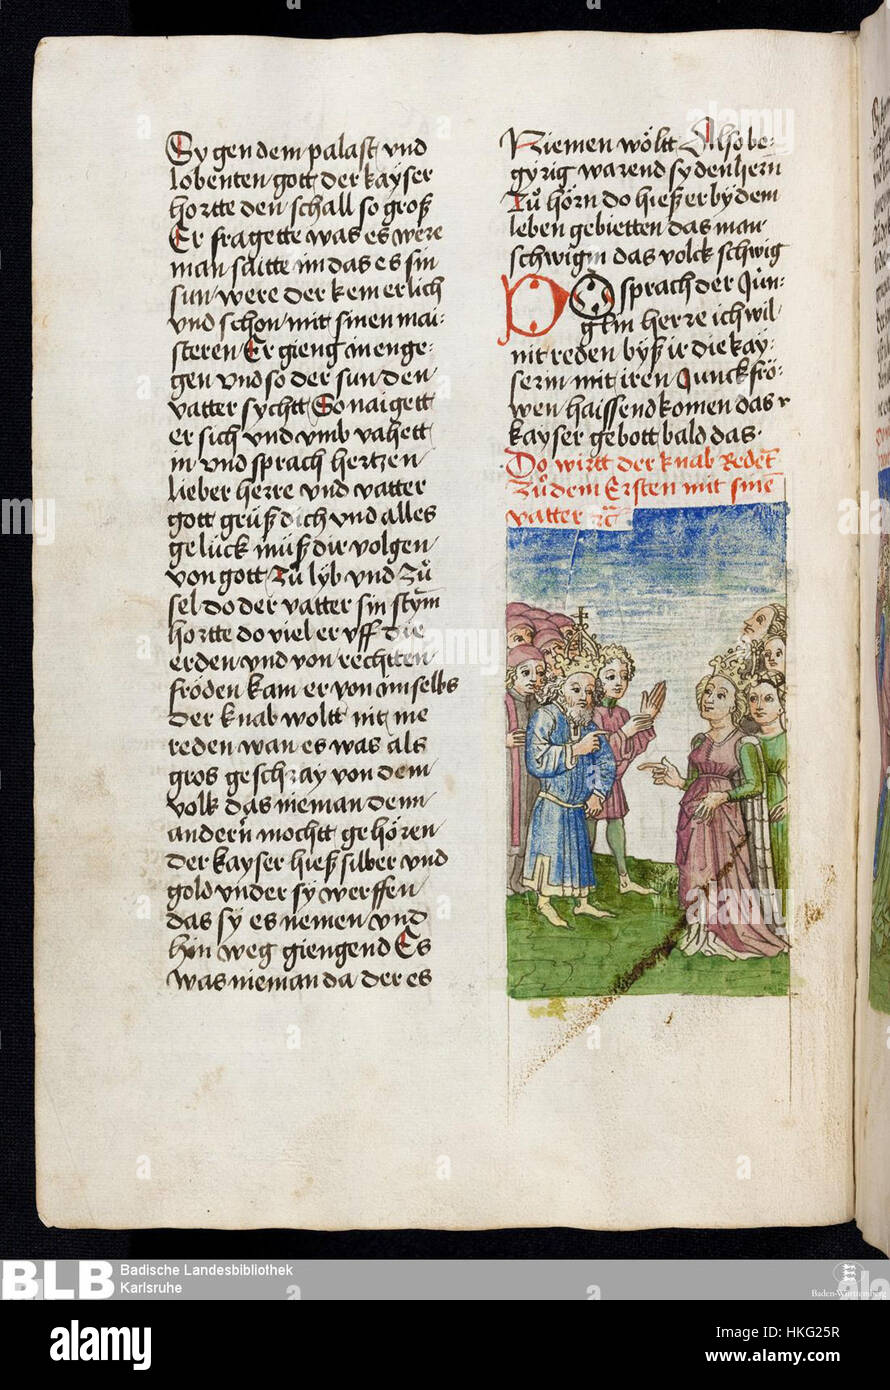 Sy gen dem palast vnd
lobenten gott der kayser
hortte den schall so groß
Er fragette was es were
man saitte im das es sin
sun were der kem erlich
vnd schon mit sinen mai-
steren Er gieng in enge-
gen vnd so der sun den
vatter sychtt So naigett
er sich vnd vmb vahett
in vnd sprach hertzen
lieber herre vnd vatter
gott grüß dich vnd alles
gelück müß dir volgen
von gott zů lyb vnd zů
sel do der vatter sin stym
hortte do viel er vff die
erden vnd von rechtten
fröden kam er von im selbs
der knab woltt nit me
reden wan es was als
gros geschray von dem
volk das nieman denn
andern mochtt gehören
der kayser hieß silber vnd
gold vnder sy werffen
das sy es nemen vnd
hin weg giengend Es
was nieman da der es
Niemen wöltt Also be-
gyrig warend sy den hern
zů hörn do hieß er by dem
leben gebietten das man
schwigin das volck schwig
DO sprach der Jün-
glin herre ich wil
nit reden byß ir die kay-
serin mit iren Junckfrö-
wen haissend komen das
kayser gebott bald das
Do wirtt der knab Redet
zů dem Ersten mit sinē
vatter
BLB Badische Landesbibliothek
Karlsruhe
Baden-Württemberg
alamy
Image ID: HKG25R
www.alamy.com